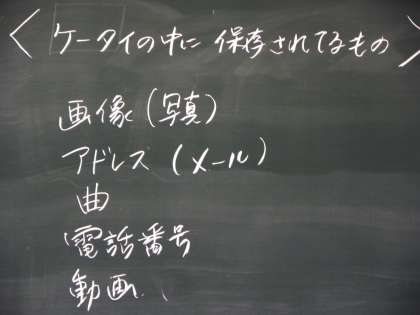 〈 ケータイの中に 保存されてるもの 〉
画像(写真)
アドレス(メール)
曲
電話番号
動画、